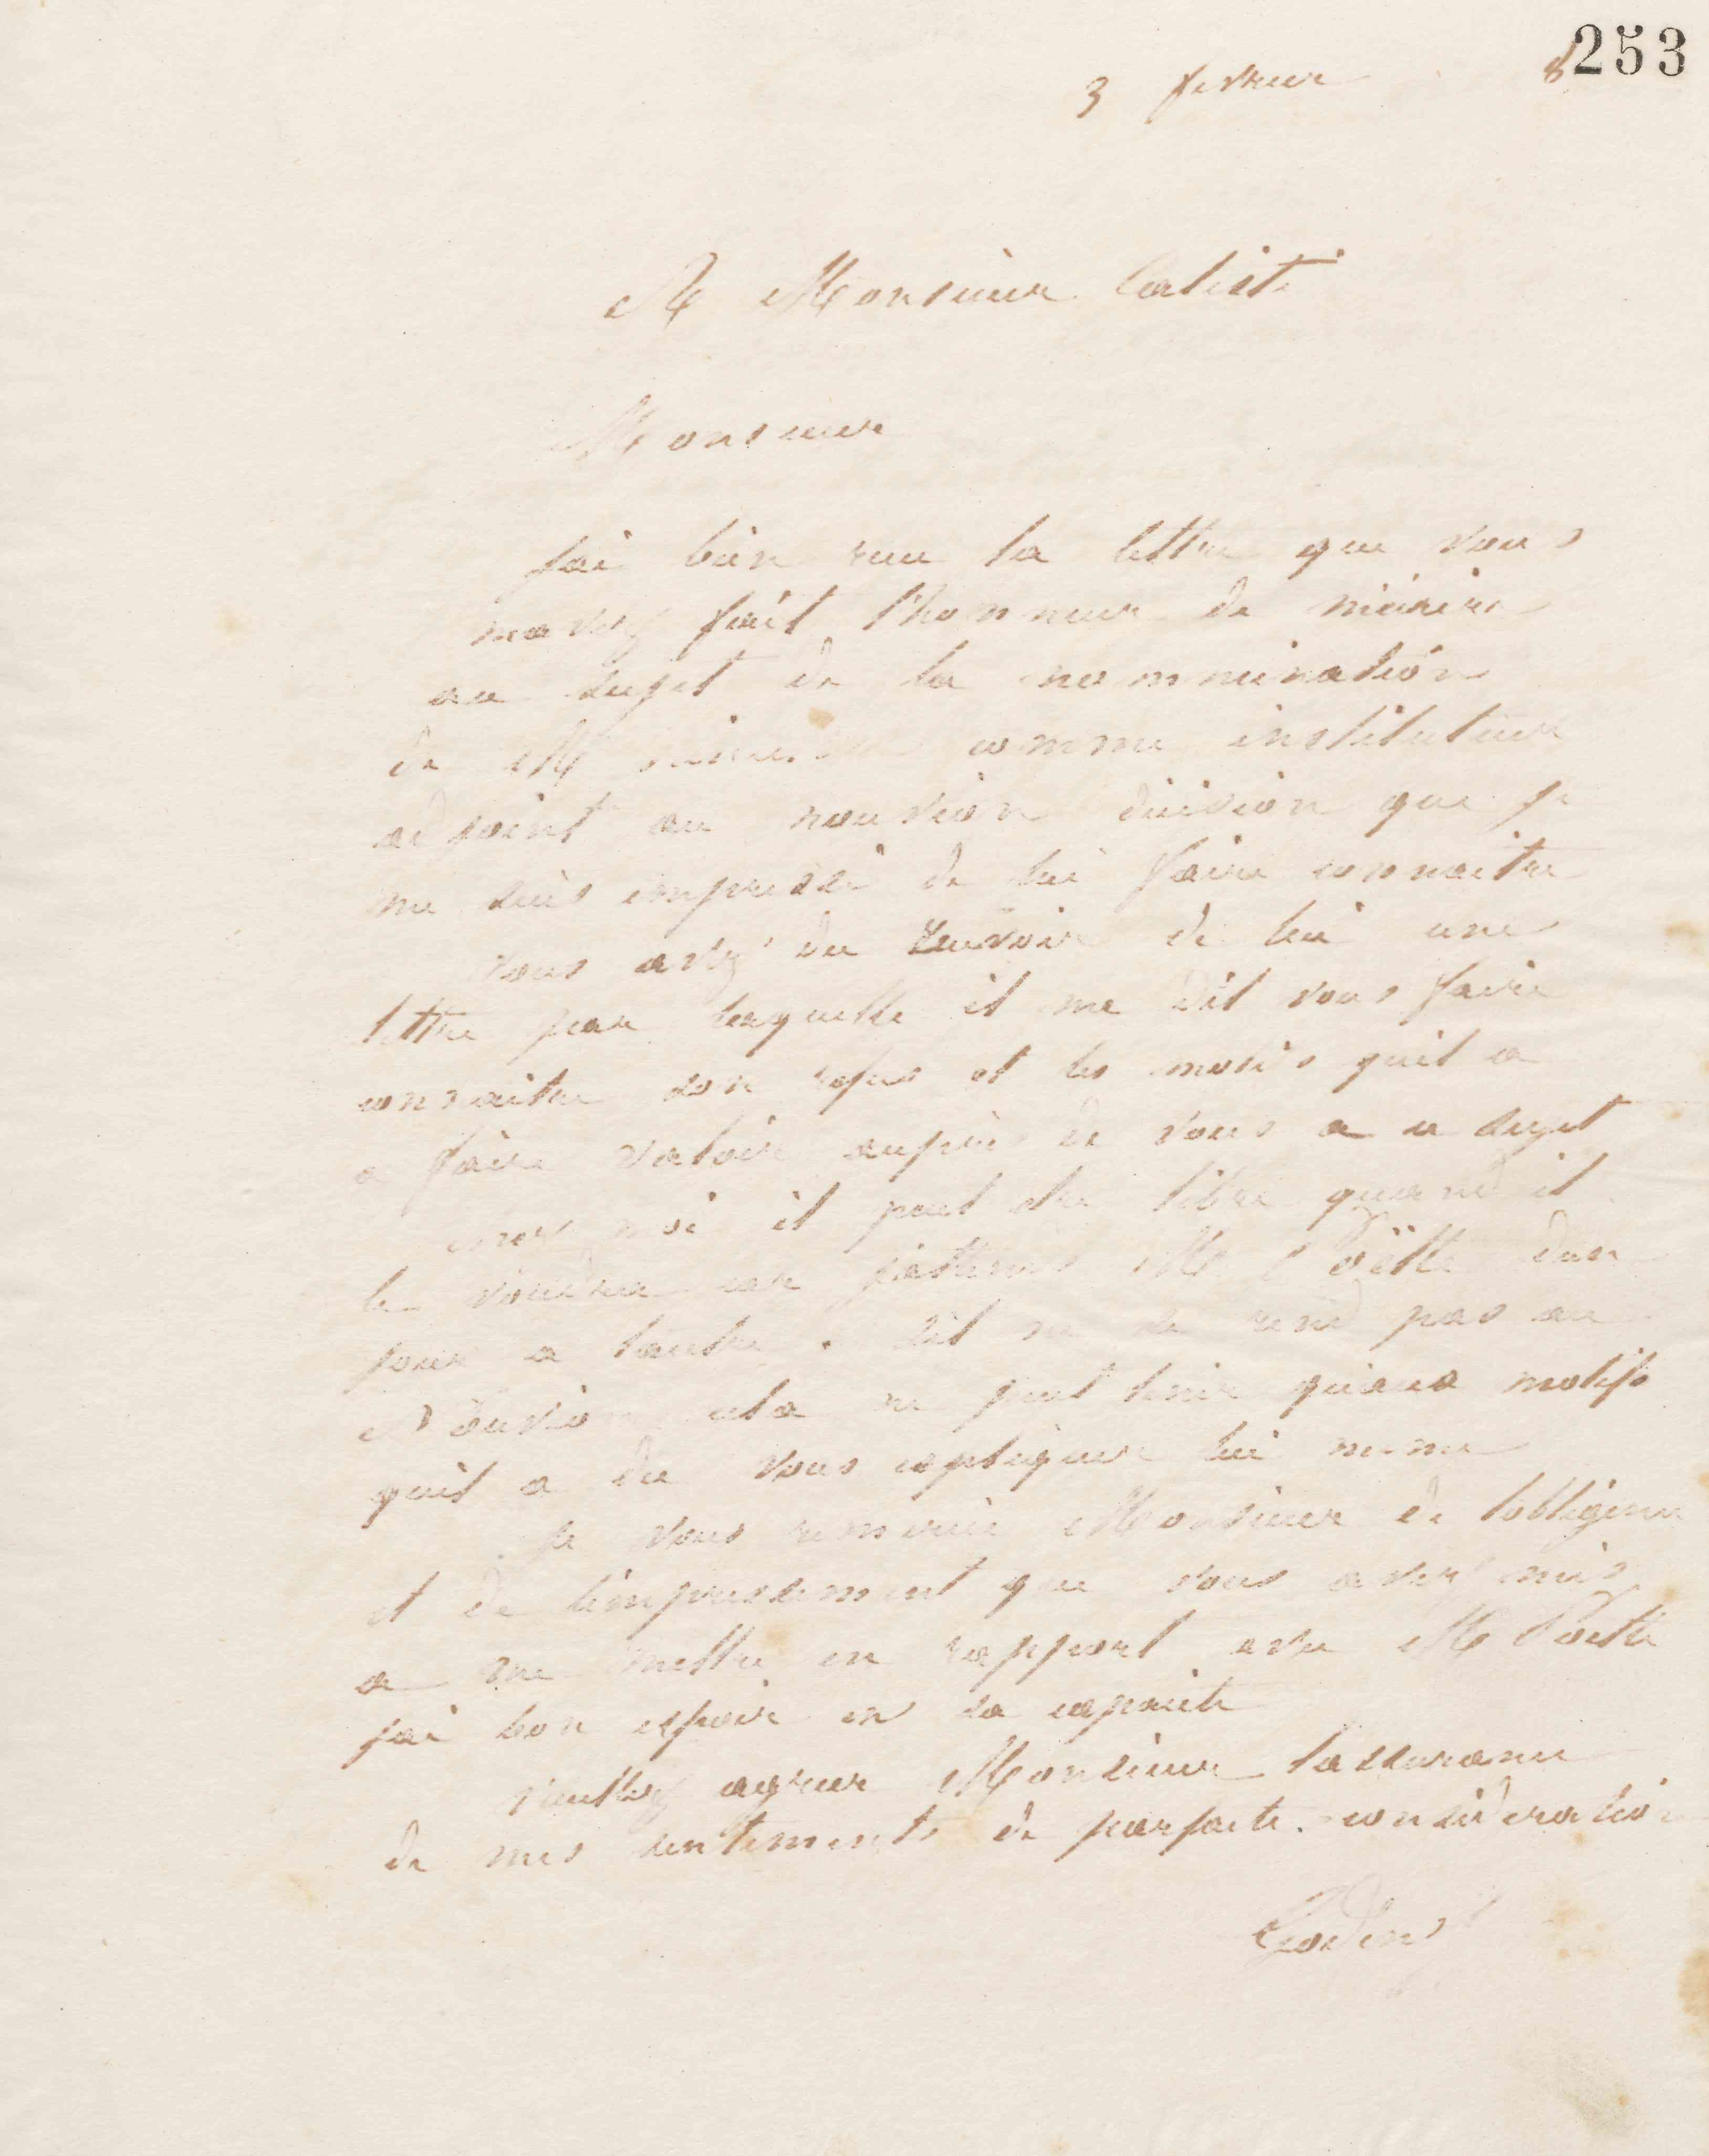 253
3 fevrier 8
A Monsieur Caliste
Monsieur
jai bien recu la lettre que vous
mavez fait lhonneur de mécrire
au sujet de la nommination
de M comme instituteur
adjoint au nouvion décision que je
me suis empressé de lui faire connaitre
vous avez du recevoir de lui une
lettre par laquelle il me dit vous faire
connaitre son refus et les motifs quil a
a faire valoir auprès de vous a ce sujet
moi il peut etre libre quand il
le voudra car jattends M Poëtte dun
jour a lautre. Sil ne se rend pas au
Nouvion cela ne peut tenir quaux motifs
quil a du vous expliquer lui meme
je vous remercie Monsieur de lobligence
et de lempressement que vous avez mis
a me mettre en rapport avec M Poëtte
jai bon espoir en sa capacité
veuillez agreer Monsieur lassurance
de mes sentiments de parfaite consideration
Godin